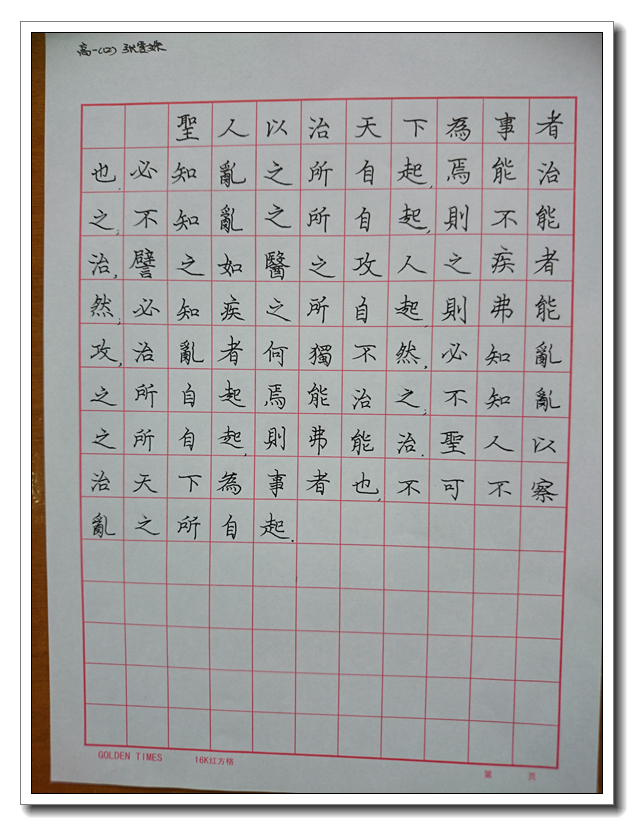 高一(四) 张
聖人以治天下為事者
也.必知亂之所自起,焉能治
之,不知亂之所自起,則不能
治,譬之如醫之攻人之疾者
然,必知疾之所自起,則弗能
攻,治亂者何獨不然,必知亂
之所自起焉能治之,不知亂
之所自起,則弗能治.聖人以
治天下為事者也,不可不察
亂之所自起.
GOLDEN TIMES 16K红方格
第 页